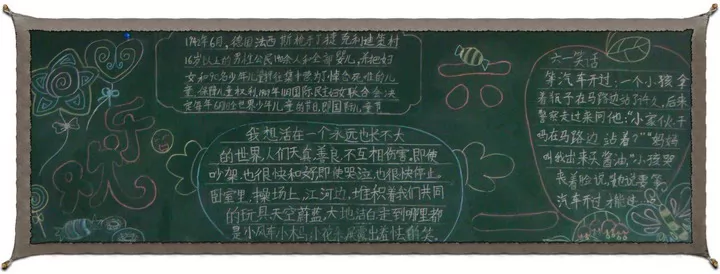 乐
欢
1942年6月,德国法西斯枪杀了捷克利迪策村
16岁以上的男性公民140余人和全部婴儿,并把妇
女和90名少年儿童押往集中营为了悼念死难的儿
童,保障儿童权利,1949年11月国际民主妇女联合会决
定每年6月1日世界少年儿童的节日,即国际儿童节
我想活在一个永远也长不大
的世界,人们天真,善良,不互相伤害,即使
吵架,也很快和好,即使哭泣也很快停止
卧室里,操场上,江河边,堆积着我们共同
的玩具天空蔚蓝,大地洁白走到哪里都
是小风车小木马,小花朵
的笑。
六一
六一笑话
等汽车开过:一个小孩拿
着瓶子在马路边站了许久,后来
警察走过来问他:"小家伙,干
吗在马路边沾着?""妈妈
叫我出来买酱油,"小孩哭
丧着脸说,"她说要等
汽车开过才能过